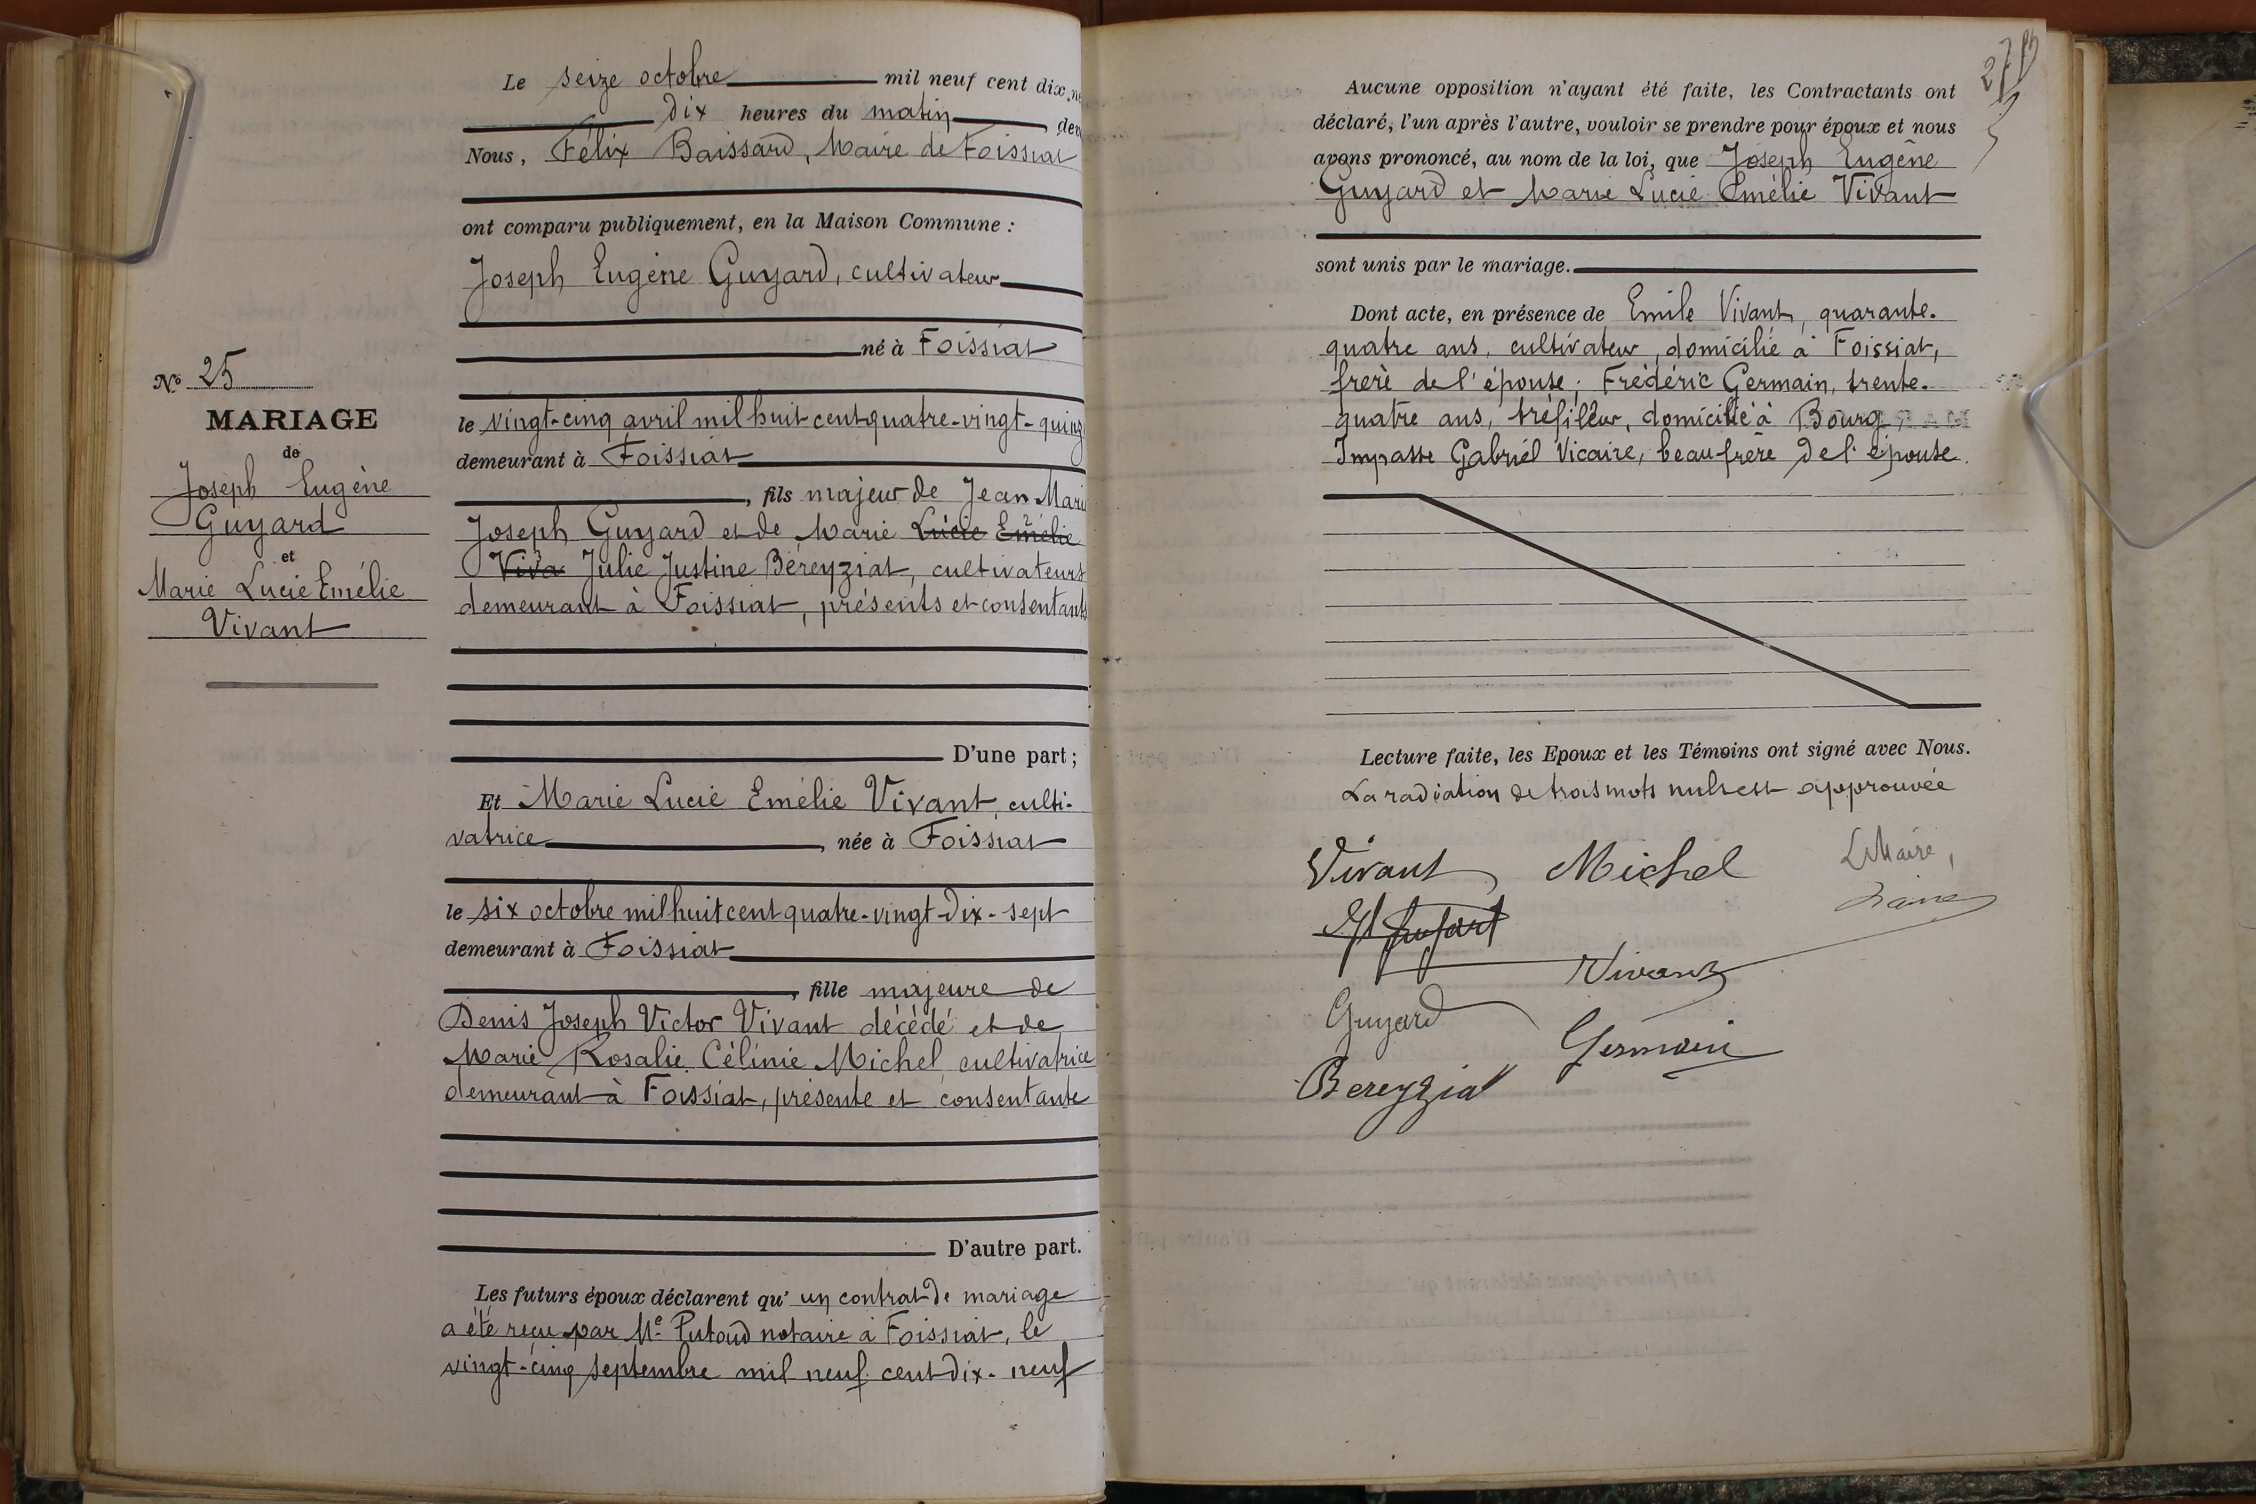 Le seize octobre mil neuf cent dix-ne
dix heures du matin, dev
Nous, Félix Baissard, Maire de Foissiat
ont comparu publiquement, en la Maison Commune :
Joseph Eugène Guyard, cultivateur
né à Foissiat
le vingt-cinq avril mil huit cent quatre-vingt-quinz
demeurant à Foissiat
, fils majeur de Jean Marie
Joseph Guyard et de Marie Lucie Emélie
Viva Julie Justine Béreyziat, cultivateurs
demeurant à Foissiat, présents et consentants
D'une part ;
Et Marie Lucie Emélie Vivant, culti-
vatrice, née à Foissiat
le six octobre mil huit cent quatre-vingt-dix-sept
demeurant à Foissiat
, fille majeure de
Denis Joseph Victor Vivant décédé et de
Marie Rosalie Célinie Michel cultivatrice
demeurant à Foissiat, présente et consentante
D'autre part.
Les futurs époux déclarent qu' un contrat de mariage
a été reçu par Me Putoud notaire à Foissiat, le
vingt-cinq septembre mil neuf cent dix-neuf
No 25
MARIAGE
de
Joseph Eugène
Guyard
et
Marie Lucie Emélie
Vivant
Aucune opposition n'ayant été faite, les Contractants ont
déclaré, l'un après l'autre, vouloir se prendre pour époux et nous
avons prononcé, au nom de la loi, que Joseph Eugène
Guyard et Marie Lucie Emélie Vivant
sont unis par le mariage.
Dont acte, en présence de Emile Vivant, quarante-
quatre ans, cultivateur, domicilié à Foissiat,
frère de l'épouse ; Frédéric Germain, trente-
quatre ans, tréfileur, domicilié à Bourg
Impasse Gabriel Vicaire, beau frère de l'épouse.
Lecture faite, les Epoux et les Témoins ont signé avec Nous.
La radiation de trois mots nuls est approuvée
Vivant Michel Le Maire,
Vivant
Guyard
Germain
Bereyziat